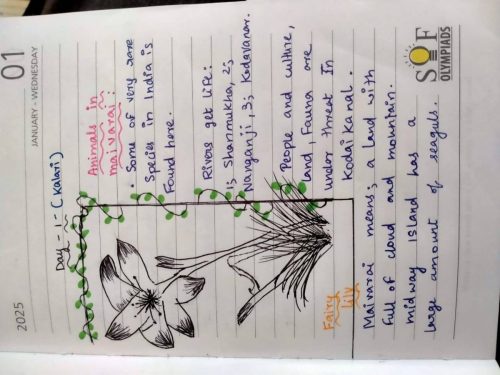 2025
JANUARY - WEDNESDAY
01
Day - 1 - (Kalari)
Animals in
maivarai :
• Some of very rare
Species in India is
Found here.
Rivas get life:
1; Shanmukha, 2;
Nanganji, 3; Kodavanar.
People and culture,
land, Fauna are
under threat In
Kodaikanal.
Fairy
lily
Maivarai means; a land with
full of cloud and mountain.
midway Island has a
large amount of seagulls.
SOF
OLYMPIADS